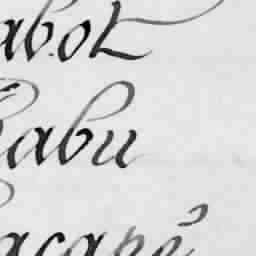 abot
abu
acapé